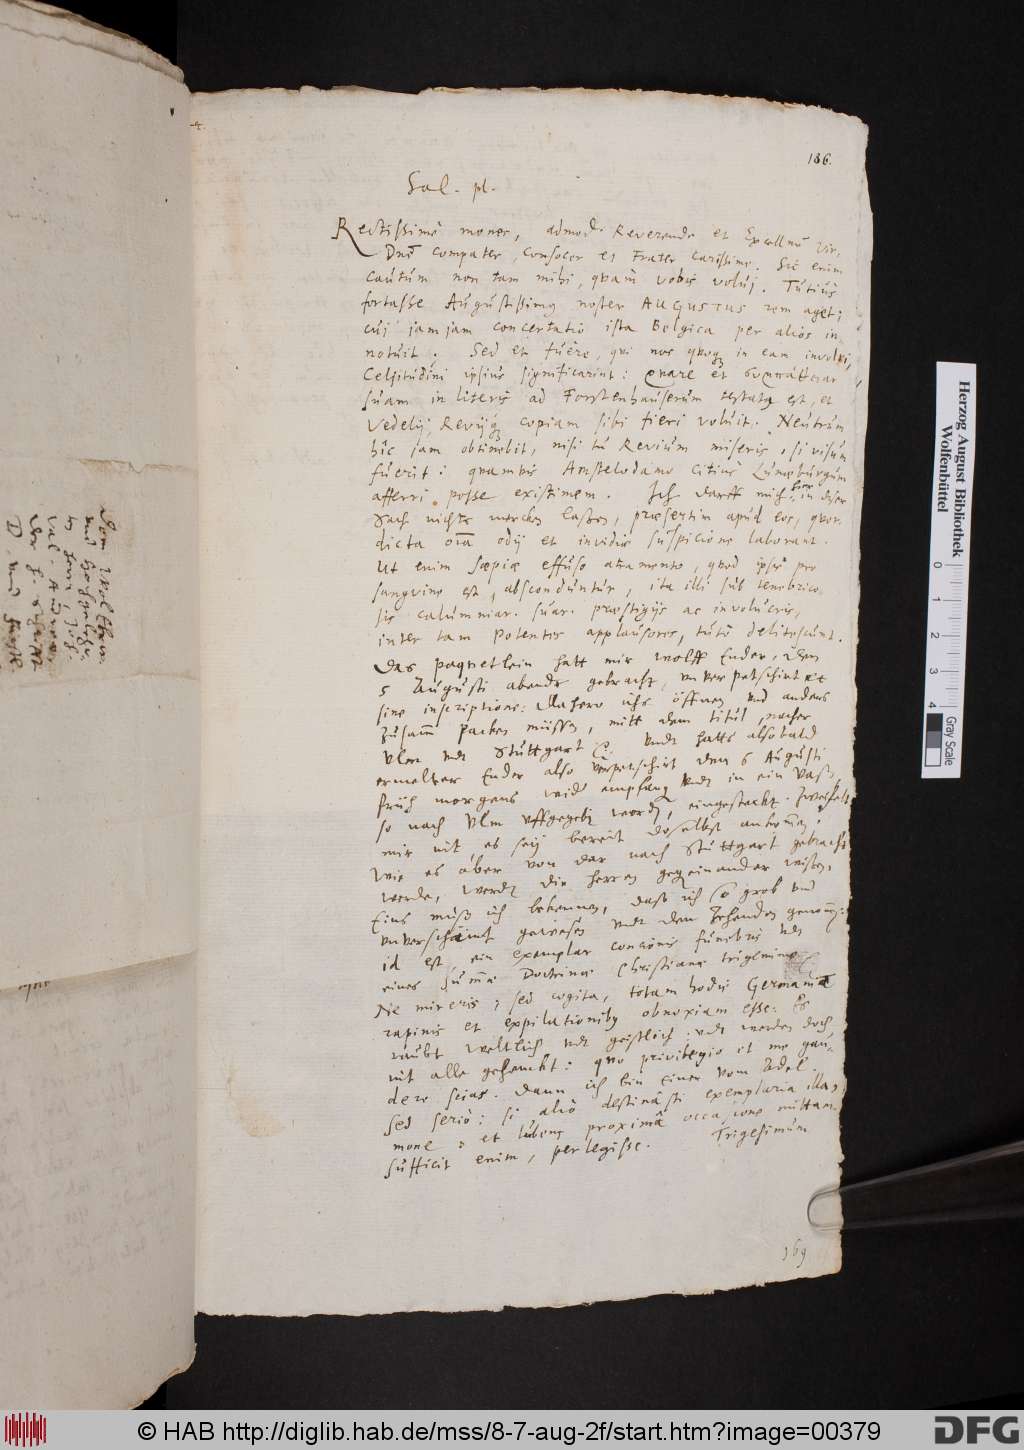 186.
Sal. pl.
Rectissimè mones, admod. Reverende et Excellme Vir,
Dne compater, consocer et Frater carissime. Sic enim
cautum non tam mihi, quàm vobis volui. Tutius
fortasse Augustissimus noster AUGUSTUS rem aget;
cui jam jam concertatio ista Belgica per alios in
notuit. Sed et fuêre, qui nos quoque in eam involvi,
Celsitudini ipsius significarint: Quare et
suam in literis ad Forstenhauserum testata est, et
Vedelij, Revijque copiam sibi fieri voluit. Neutrum
hîc jam obtinebit, nisi tu Revium miseris, si visum
fuerit: quamvis Amstelodamo citius Lunæburgum
afferri posse existimem. Ich darff mich hier in diser
sach nichts mercken lassen, præsertim apud eos, quor.
dicta oīa odij et invidiæ suspicione laborant.
Ut enim Sæpiæ effuso atramento, quod ipsis pro
sanguine est, absconduntur, ita illi sub tenebrico-
sis calumniar. suar. præstigijs ac involucris,
inter tam Potentes applausores, tutò delitescunt.
Das paquetlein hatt mir Wolff Ender, den
5 Augusti abends gebracht, unverpetschirt et
sine inscriptione: dahero ichs öffnen und anders
zusam̄ packen müssen, mitt dem titul, nacher
Ulm undt Stuttgart etc. undt hatts alsobald
ermelter Ender also verpetschirt den 6 Augusti
früh morgens wider empfang. undt in ein Vaß,
so nach Ulm uffgegeben worden, eingesteckt. Zweifelt
mir nit es seij bereit doselbst ankom̄en;
Wie es aber von dar nach Stuttgart gebracht
werde, werden die Herren gegeneinander wissen.
Eins muß ich bekennen, daß ich so grob und
unverschämt gewesen undt den Zehenden genom̄en:
id est, ein exemplar concionis funebris undt
eines Sum̄æ Doctrinæ Christianæ trigeminæ
Ne mireris; sed cogita, totam hodiè Germaniā
rapinis et expilationibus obnoxiam esse: Es
raubt weltlich undt geistlich: undt werden doch
nit alle gehenckt: quo privilegio et me gau-
dere scias. Dann ich bin einer vom Adel.
Sed seriò: si aliò destinasti exemplaria illa,
mone: et lubens proximâ occasione mittam
Sufficit enim, perlegisse. Trigesimum
169
Herzog August Bibliothek
Wolfenbüttel
0 1 2 3 4
Gray Scale
© HAB http://diglib.hab.de/mss/8-7-aug-2f/start.htm?image=00379
DFG